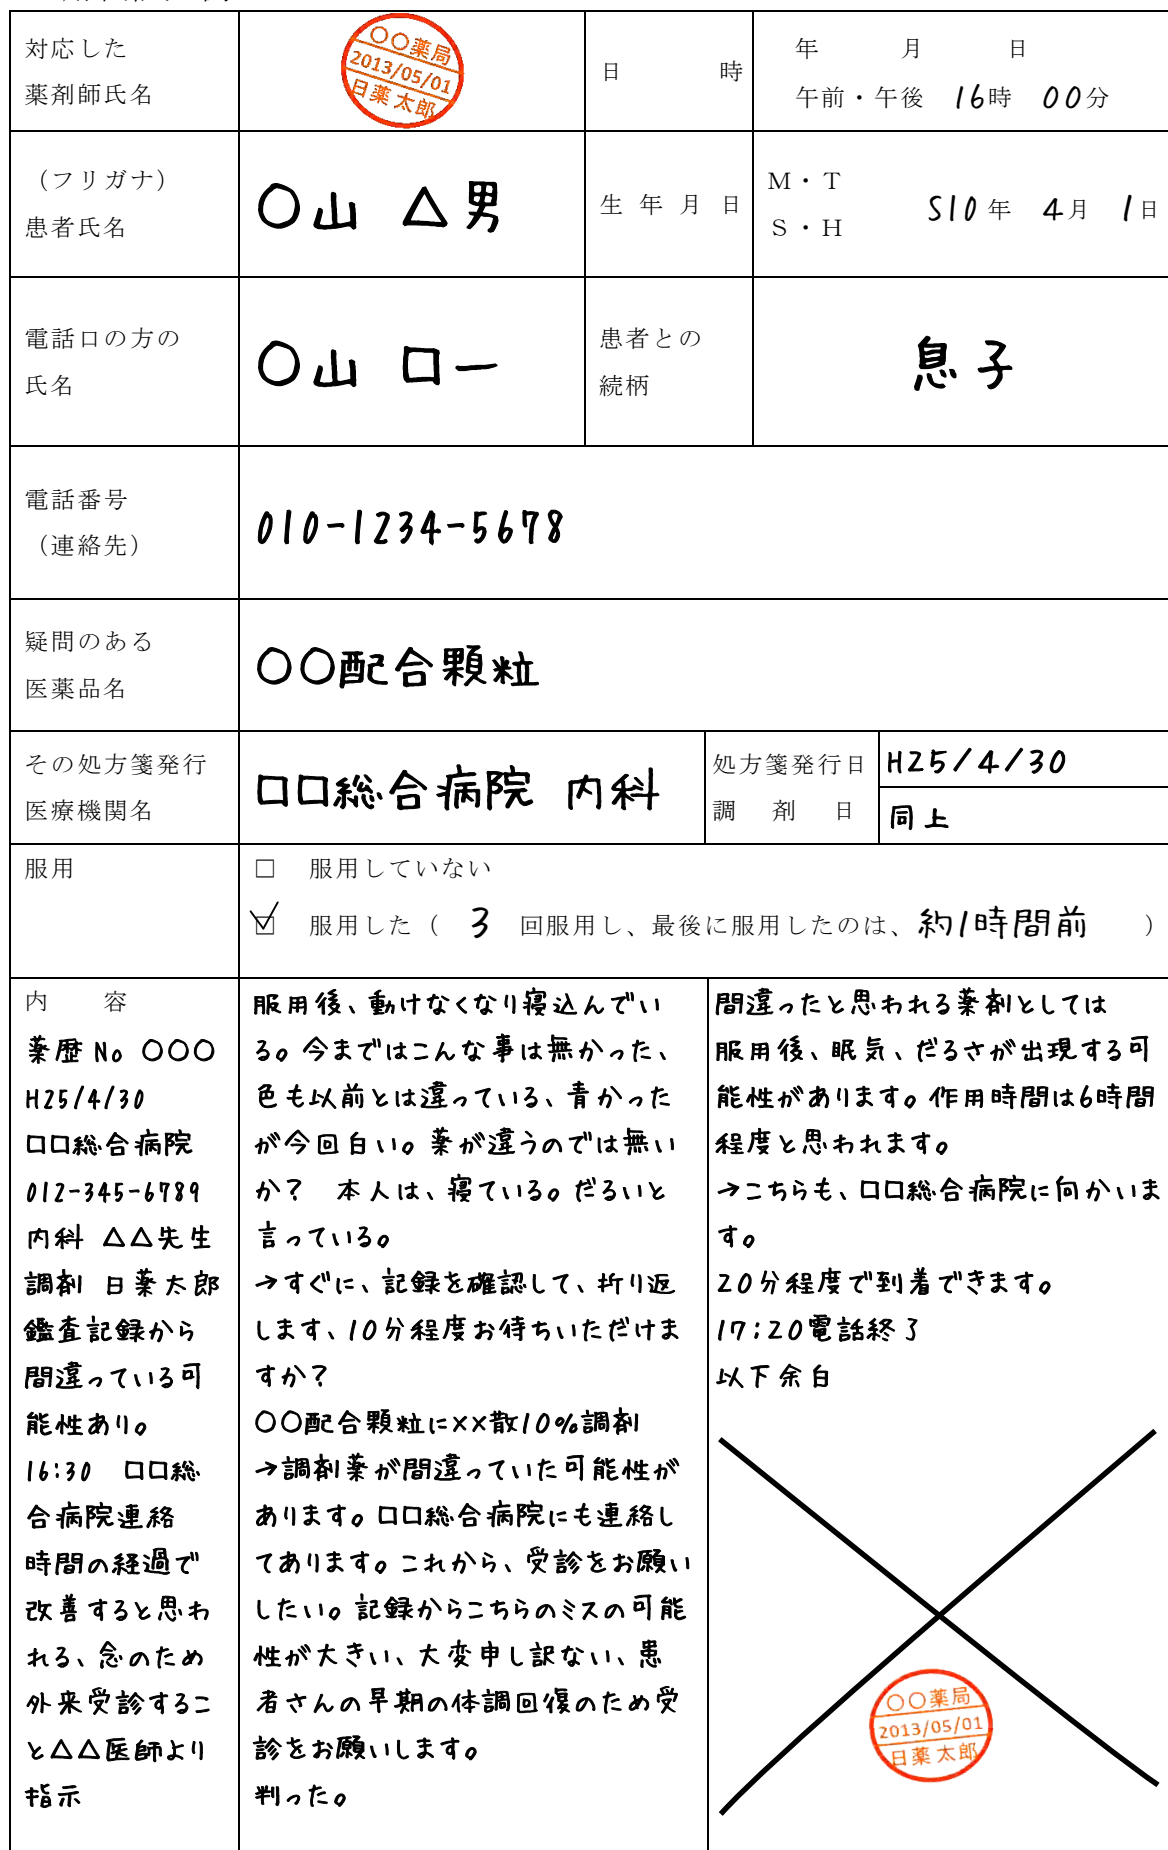 対応した
薬剤師氏名
〇〇薬局
2013/05/01
日薬太郎
日 時
年 月 日
午前・午後 16時 00分
（フリガナ）
患者氏名
〇山 △男
生年月日
M・T
S・H
S10年 4月 1日
電話口の方の
氏名
〇山 口一
患者との
続柄
息子
電話番号
（連絡先）
010-1234-5678
疑問のある
医薬品名
〇〇配合顆粒
その処方箋発行
医療機関名
口口総合病院 内科
処方箋発行日
調 剤 日
H25/4/30
同上
服用
□ 服用していない
☑ 服用した（ 3 回服用し、最後に服用したのは、約1時間前 ）
内 容
薬歴 No 〇〇〇
H25/4/30
口口総合病院
012-345-6789
内科 △△先生
調剤 日薬太郎
鑑査記録から
間違っている可
能性あり。
16:30 口口総
合病院連絡
時間の経過で
改善すると思わ
れる、念のため
外来受診するこ
と△△医師より
指示
服用後、動けなくなり寝込んでい
る。今まではこんな事は無かった、
色も以前とは違っている、青かった
が今回白い。薬が違うのでは無い
か？ 本人は、寝ている。だるいと
言っている。
→すぐに、記録を確認して、折り返
します、10分程度お待ちいただけま
すか？
〇〇配合顆粒に××散10%調剤
→調剤薬が間違っていた可能性が
あります。口口総合病院にも連絡し
てあります。これから、受診をお願い
したい。記録からこちらのミスの可能
性が大きい、大変申し訳ない、患
者さんの早期の体調回復のため受
診をお願いします。
判った。
間違ったと思われる薬剤としては
服用後、眠気、だるさが出現する可
能性があります。作用時間は6時間
程度と思われます。
→こちらも、口口総合病院に向かいま
す。
20分程度で到着できます。
17:20電話終了
以下余白
〇〇薬局
2013/05/01
日薬太郎